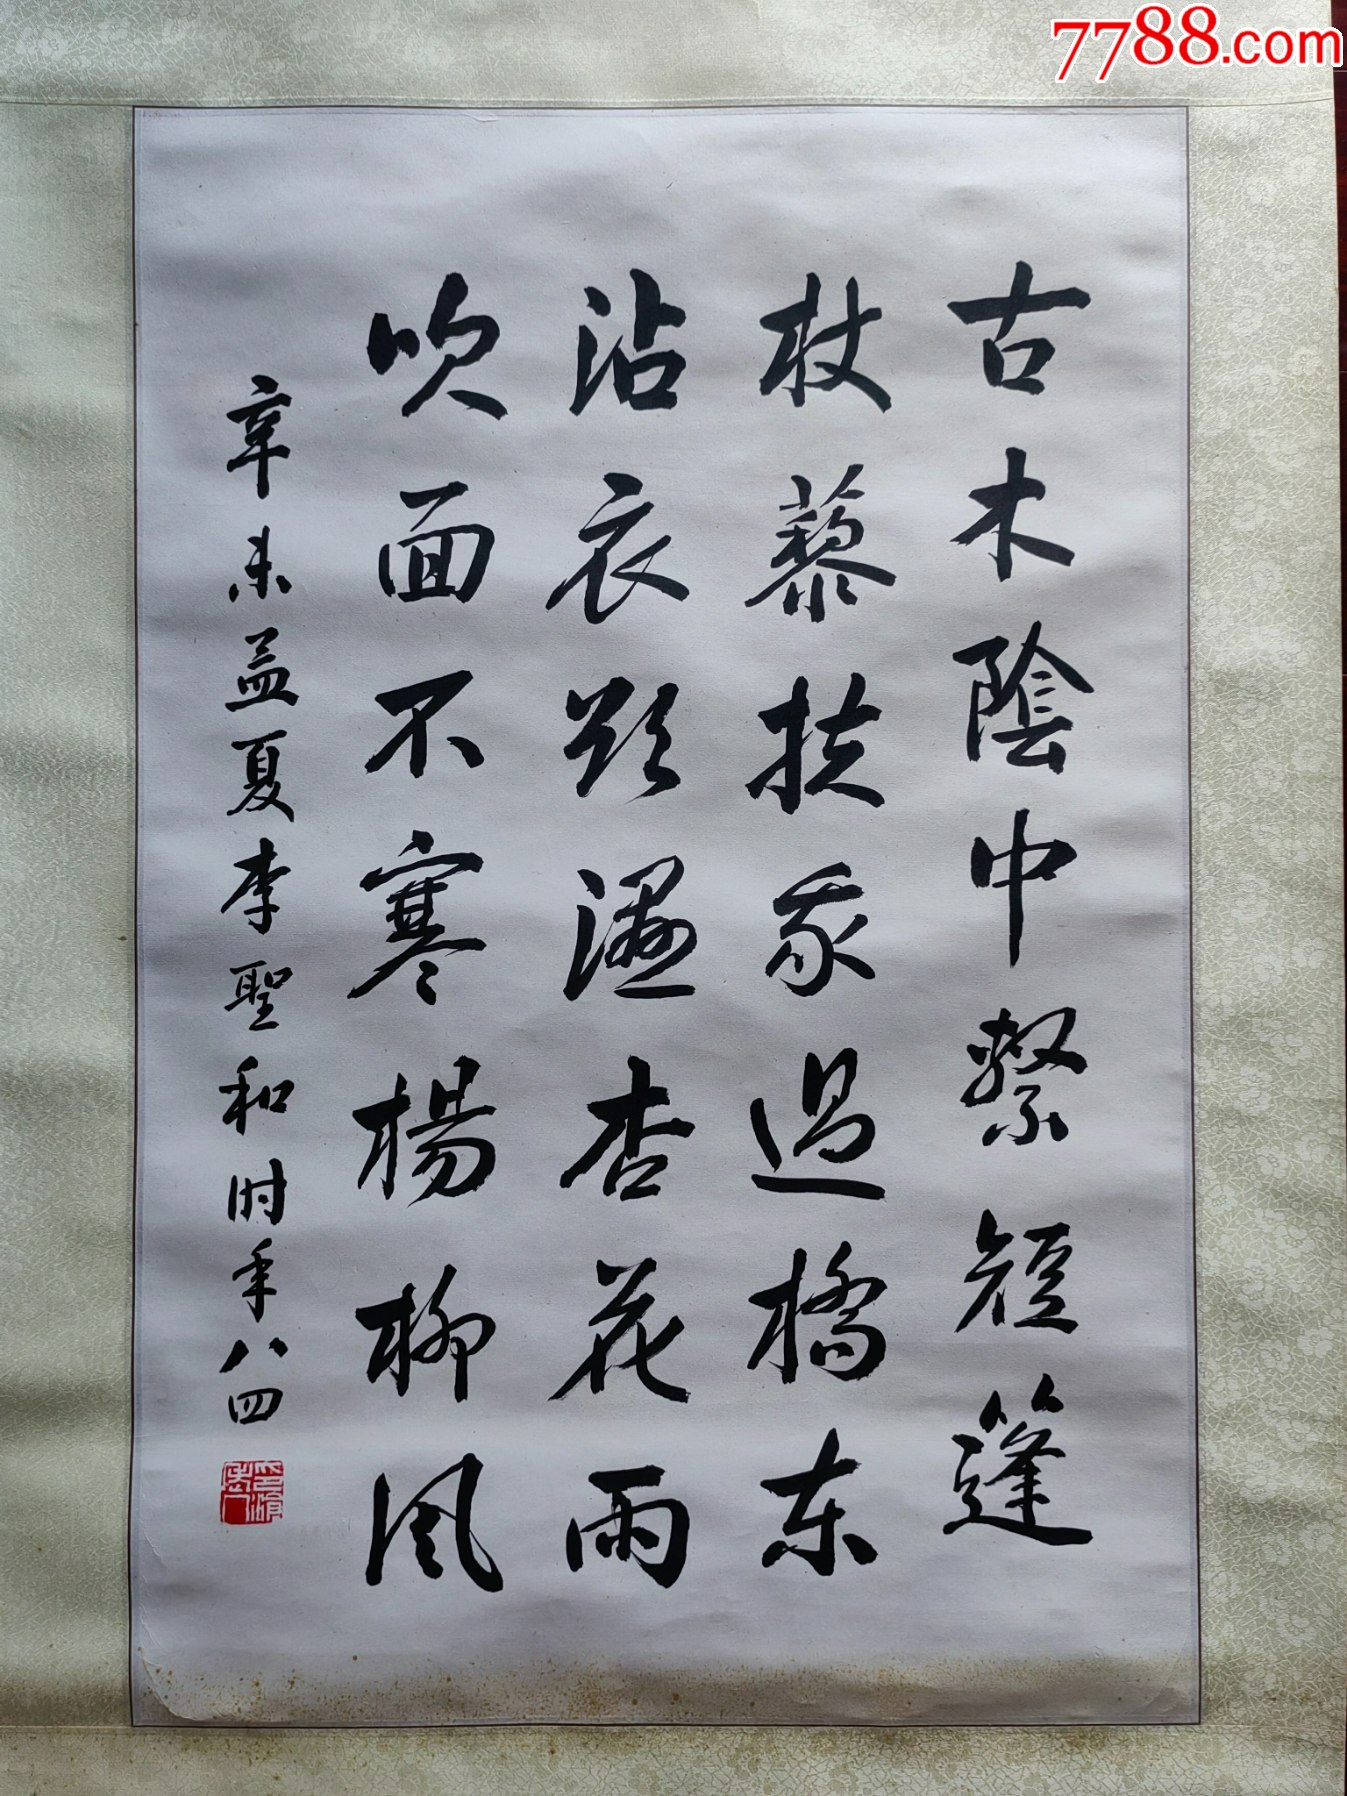 7788.com
古木陰中繫短篷
杖藜扶我過橋东
沾衣欲濕杏花雨
吹面不寒楊柳风
辛未孟夏李聖和时年八四